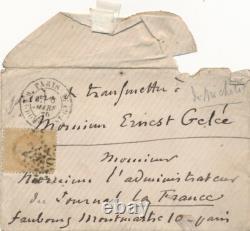 PARIS
MARS
à transmettre à
Monsieur Ernest Gelée
Monsieur
Monsieur l'administrateur
du Journal La France
Faubourg Montmartre 10 - paris